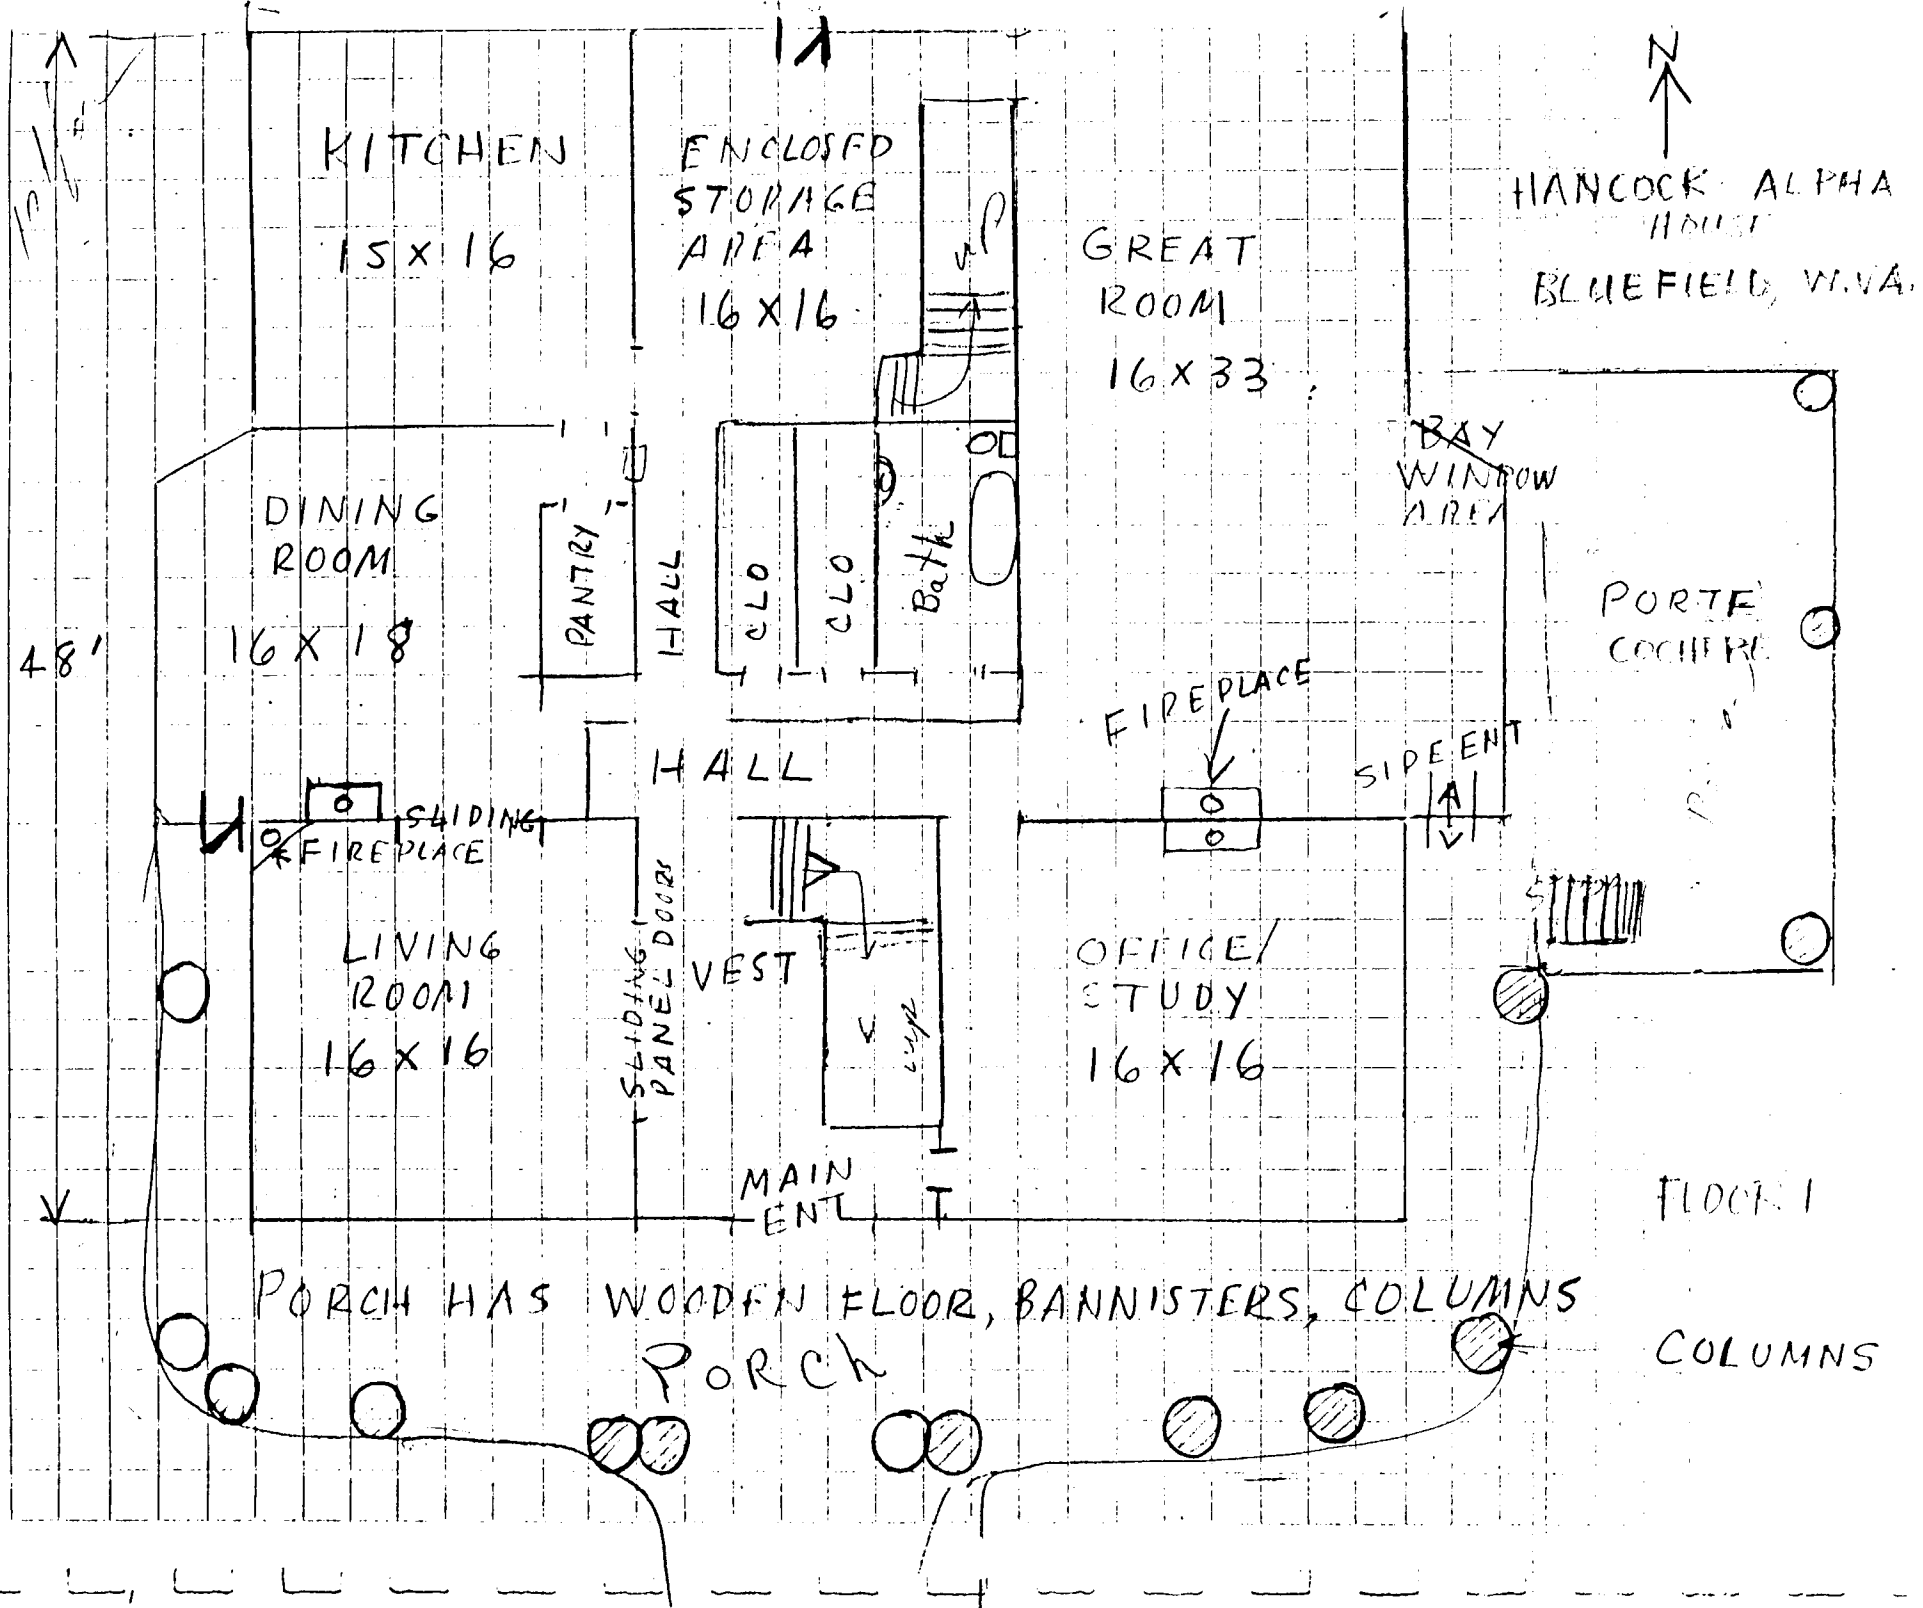 N
HANCOCK ALPHA
HOUSE
BLUEFIELD, W.VA.
KITCHEN
15 X 16
ENCLOSED
STORAGE
AREA
16 X 16
up
GREAT
ROOM
16 X 33
BAY
WINDOW
AREA
DINING
ROOM
16 X 18
PANTRY
HALL
CLO
CLO
Bath
PORTE
COCHERE
48'
FIREPLACE
SIDE ENT
HALL
SLIDING
FIREPLACE
LIVING
ROOM
16 X 16
SLIDING
PANEL DOORS
VEST
up
OFFICE/
STUDY
16 X 16
MAIN
ENT
FLOOR 1
PORCH HAS WOODEN FLOOR, BANNISTERS, COLUMNS
PORCh
COLUMNS